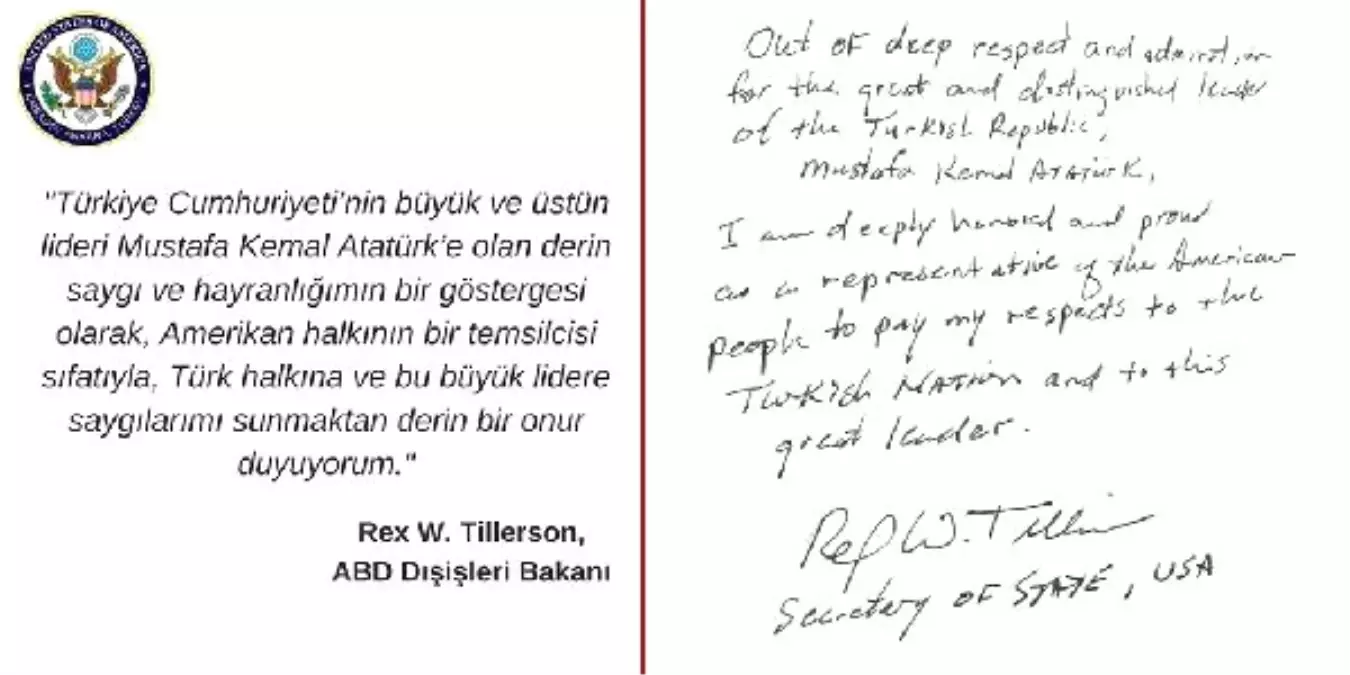 UNITED STATES OF AMERICA
"Türkiye Cumhuriyeti'nin büyük ve üstün
lideri Mustafa Kemal Atatürk'e olan derin
saygı ve hayranlığımın bir göstergesi
olarak, Amerikan halkının bir temsilcisi
sıfatıyla, Türk halkına ve bu büyük lidere
saygılarımı sunmaktan derin bir onur
duyuyorum."
Rex W. Tillerson,
ABD Dışişleri Bakanı
Out of deep respect and admiration
for the great and distinguished leader
of the Turkish Republic,
Mustafa Kemal Atatürk,
I am deeply honored and proud
as a representative of the American
people to pay my respects to the
Turkish Nation and to this
great leader.
Rex W. Tillerson
Secretary of State, USA